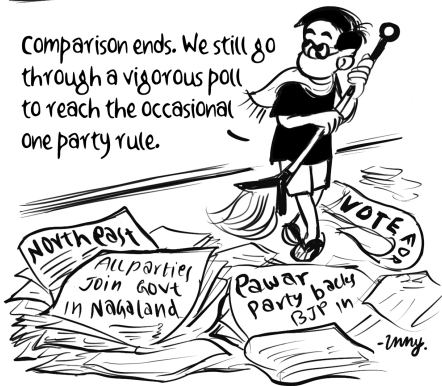 Comparison ends. We still go
through a vigorous poll
to reach the occasional
one party rule.
VOTE FOR
Northeast
All parties
Join Govt
in Nagaland
Pawar
Party backs
BJP in
-Unny.